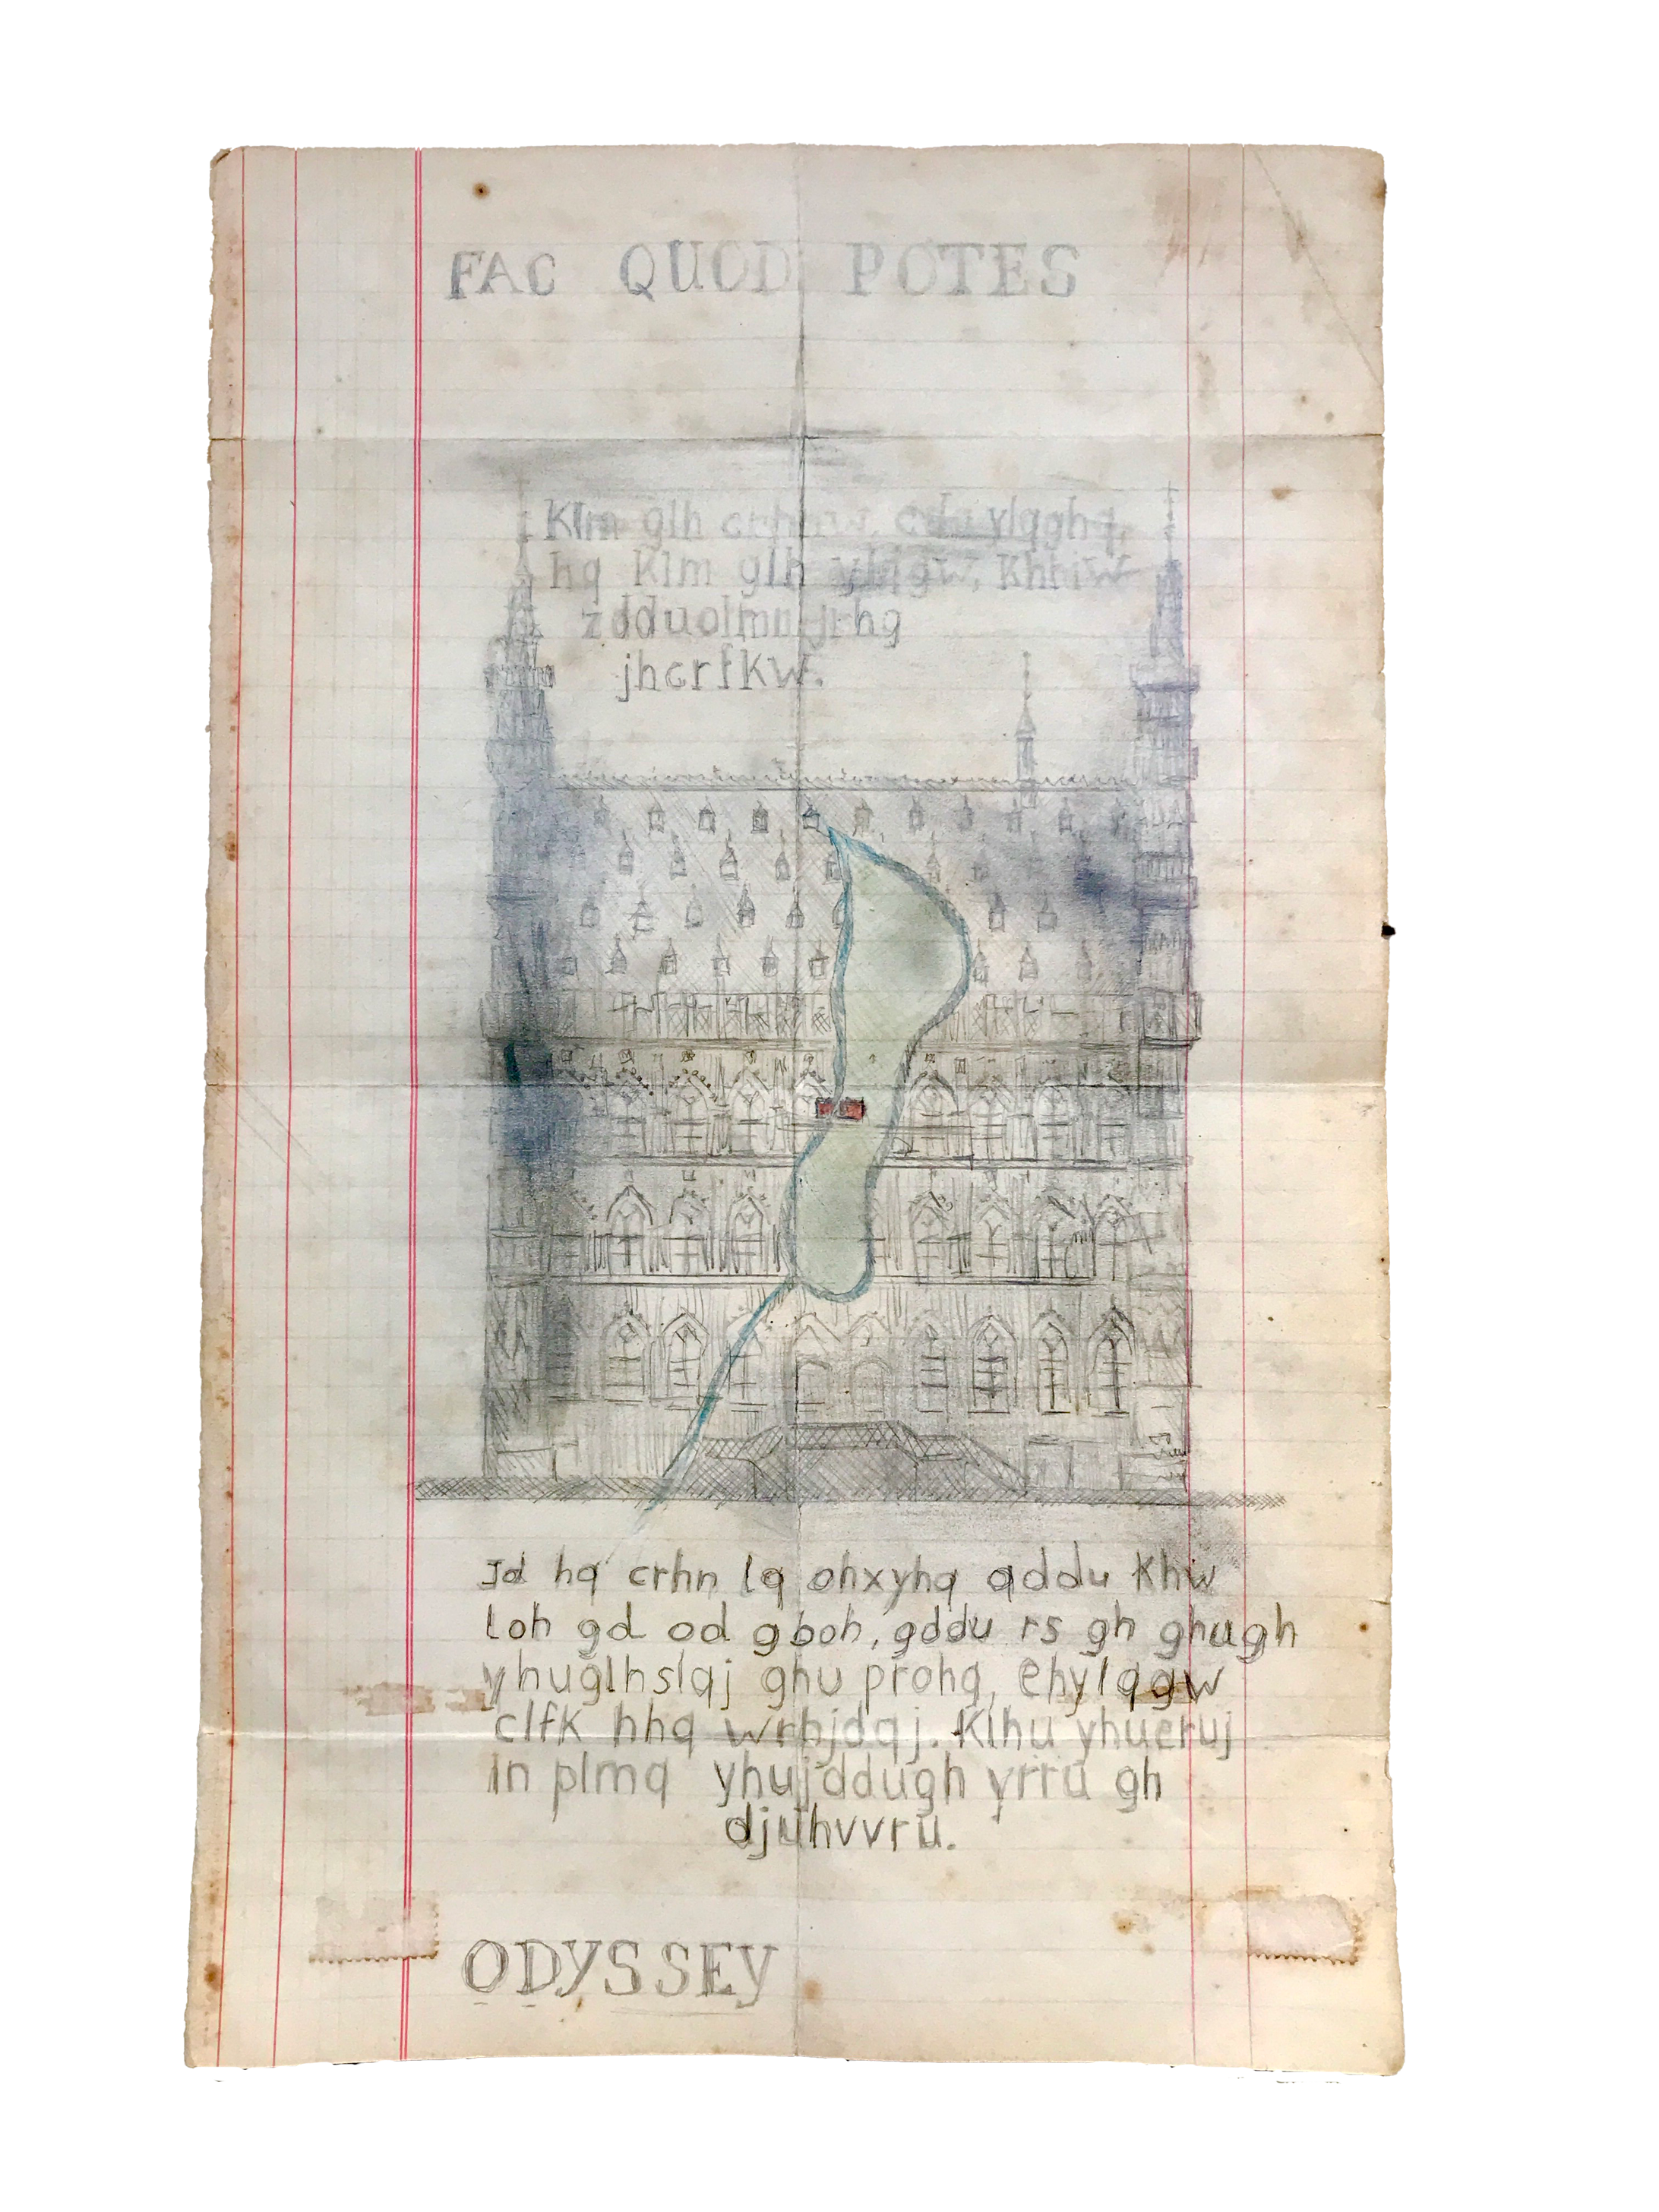 FAC QUOD POTES
Klm glh crhnw, cdo ylqghq,
hq Klm glh ylqgw, Khhiw
zdduolmn jrhg
jhcrfKw.
Jd hq crhn lq ohxyhq qddu Khw
loh gd od gboh, gddu rs gh ghugh
yhuglhslqj ghu prohq, ehylqgw
clfK hhq wrhjdqj. Klhu yhueruj
ln plmq yhujddugh yrru gh
djuhvvru.
ODYSSEY